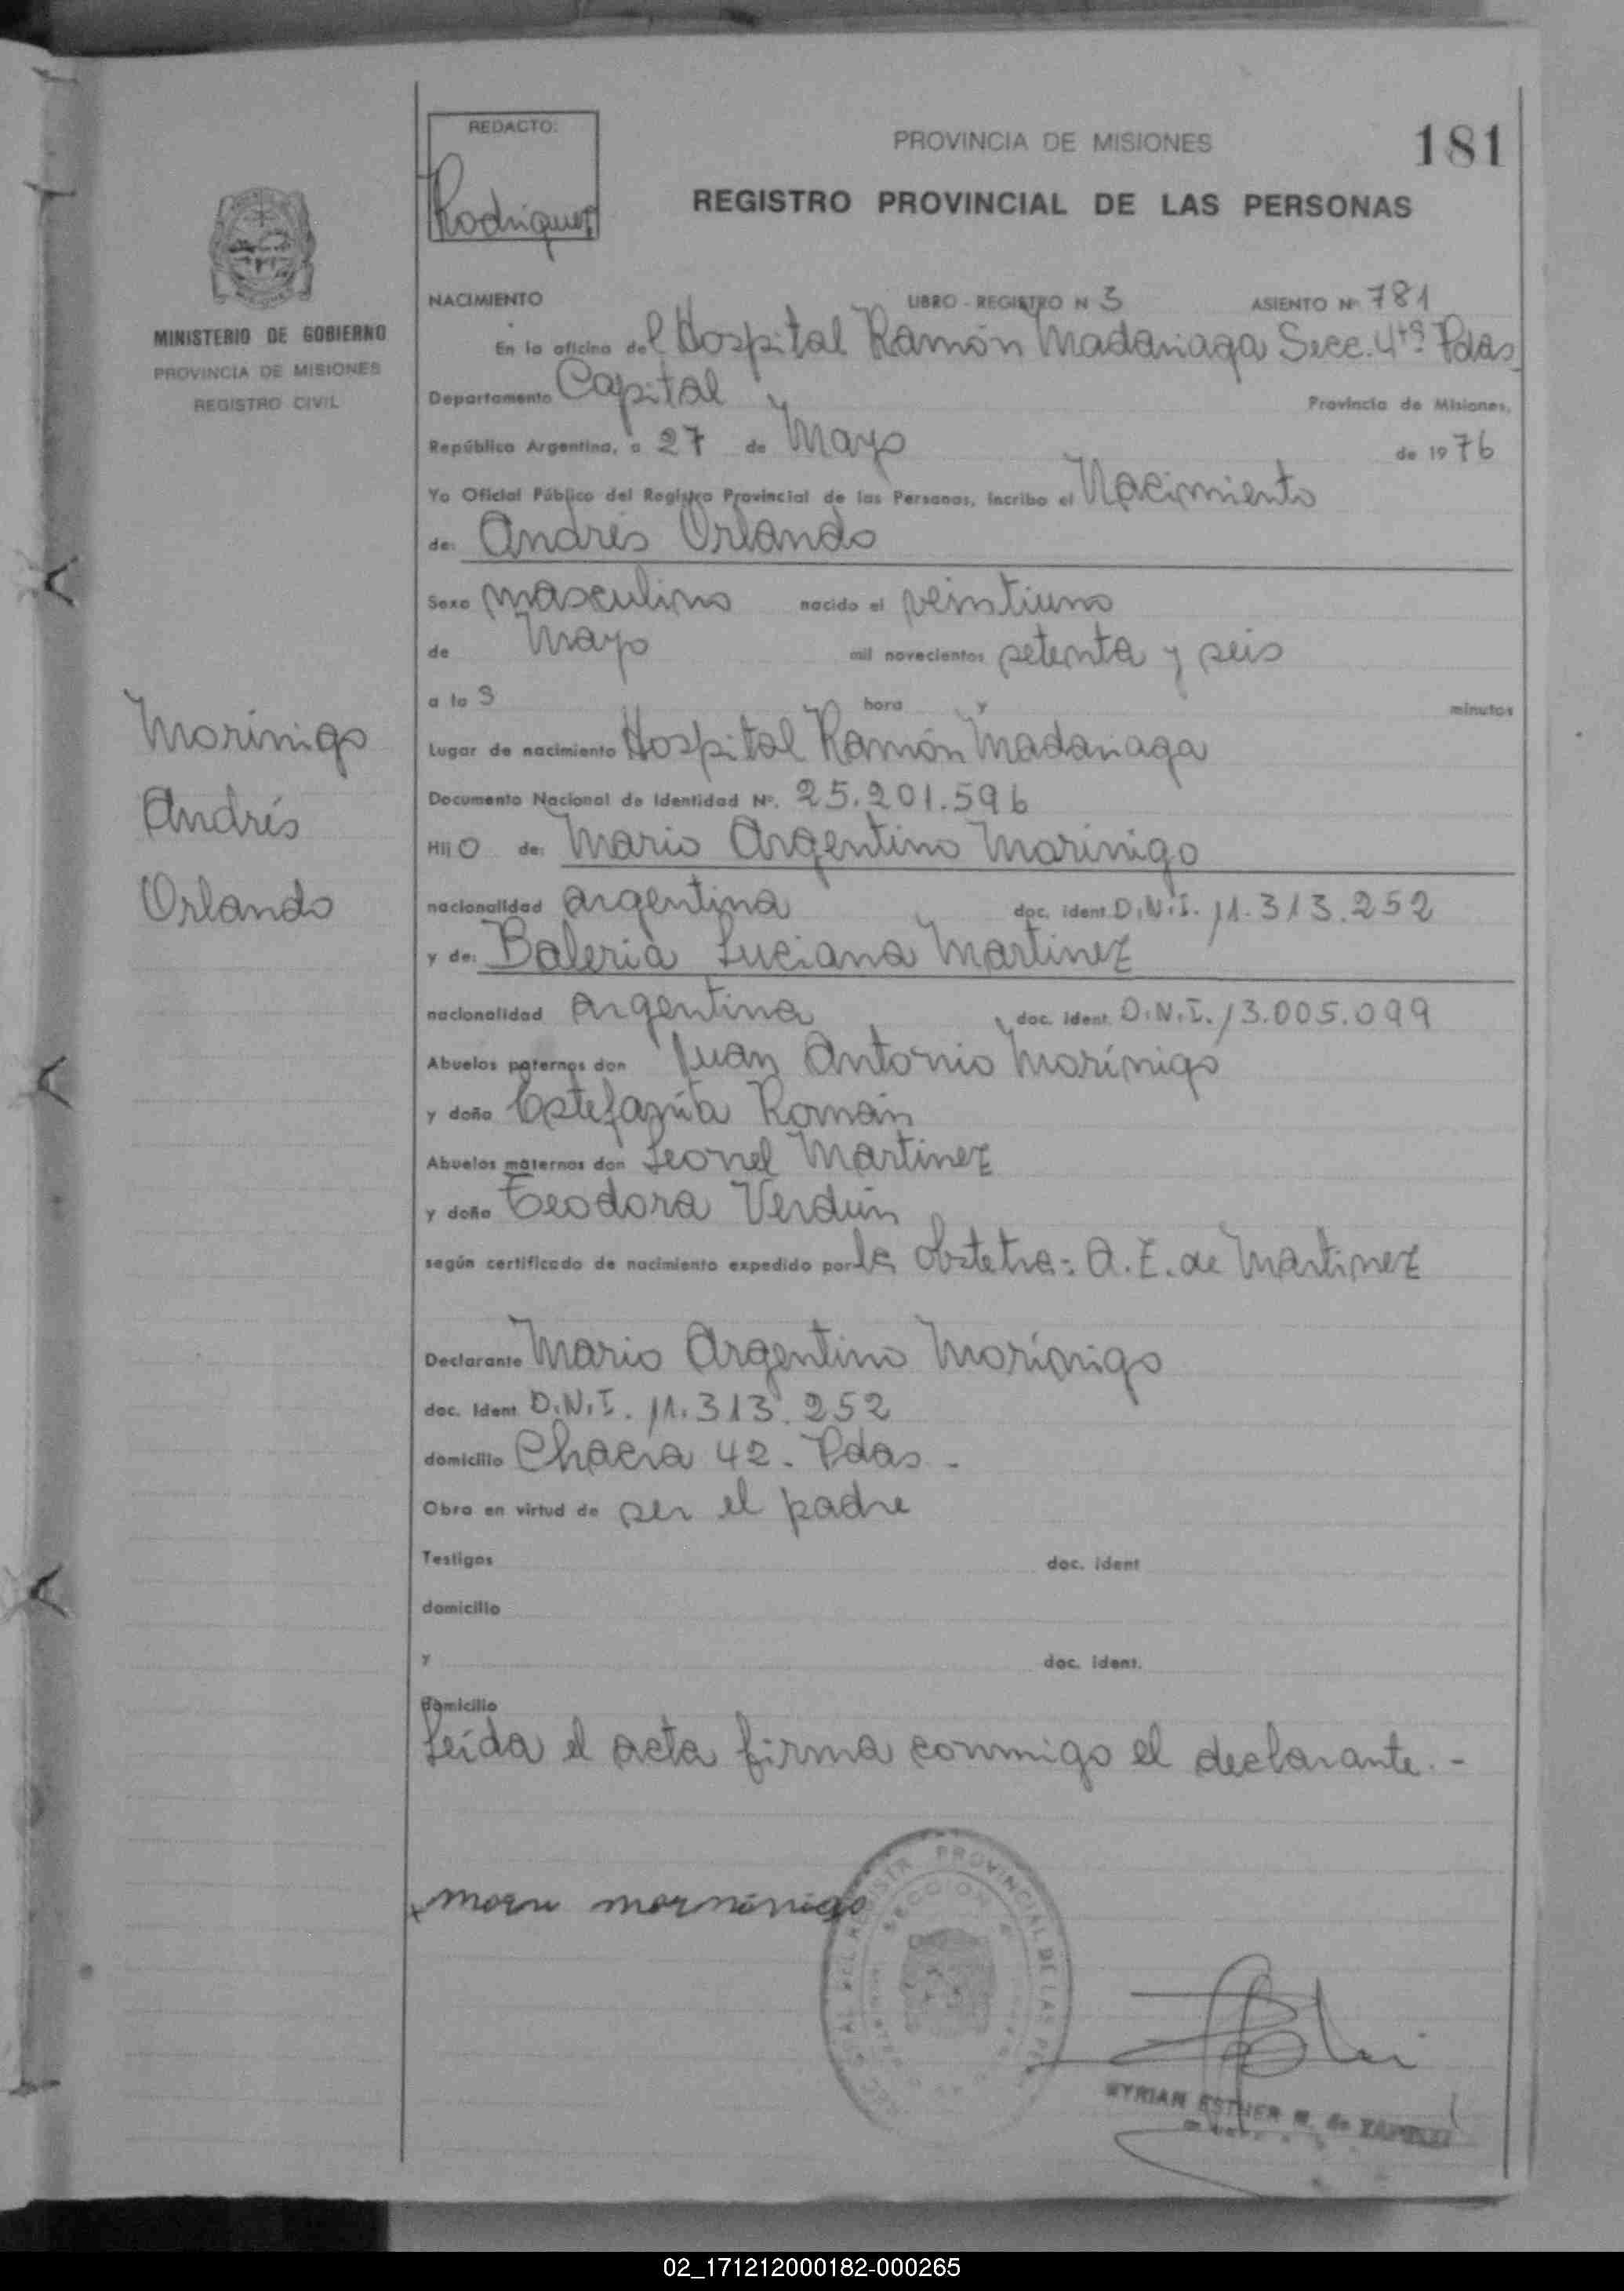 REDACTO:
Rodriguez
PROVINCIA DE MISIONES
181
REGISTRO PROVINCIAL DE LAS PERSONAS
MINISTERIO DE GOBIERNO
PROVINCIA DE MISIONES
REGISTRO CIVIL
NACIMIENTO LIBRO - REGISTRO N 3 ASIENTO Nº 781
En la oficina del Hospital Ramón Madariaga Secc. 4ta Pdas
Departamento Capital Provincia de Misiones,
República Argentina, a 27 de Mayo de 1976
Yo Oficial Público del Registro Provincial de las Personas, inscribo el Nacimiento
de: Andrés Orlando
Sexo masculino nacido el veintiuno
de Mayo mil novecientos setenta y seis
a la 3 hora y minutos
Lugar de nacimiento Hospital Ramón Madariaga
Documento Nacional de Identidad Nº. 25.201.596
Hijo de: Mario Argentino Morínigo
nacionalidad argentina doc. ident. D.N.I. 11.313.252
y de: Baleria Luciana Martinez
nacionalidad argentina doc. ident. D.N.I. 13.005.099
Abuelos paternos don Juan Antonio Morínigo
y doña Estefanía Román
Abuelos maternos don Leonel Martinez
y doña Teodora Verdún
según certificado de nacimiento expedido por la Obstetra: A. E. de Martinez
Declarante Mario Argentino Morínigo
doc. Ident. D.N.I. 11.313.252
domicilio Chacra 42. Pdas -
Obra en virtud de ser el padre
Testigos doc. ident
domicilio
y doc. ident.
domicilio
Leída el acta firma conmigo el declarante. -
Morínigo
Andrés
Orlando
PROVINCIAL DE LAS
SECCION
MYRIAN ESTHER M. de
02_171212000182-000265